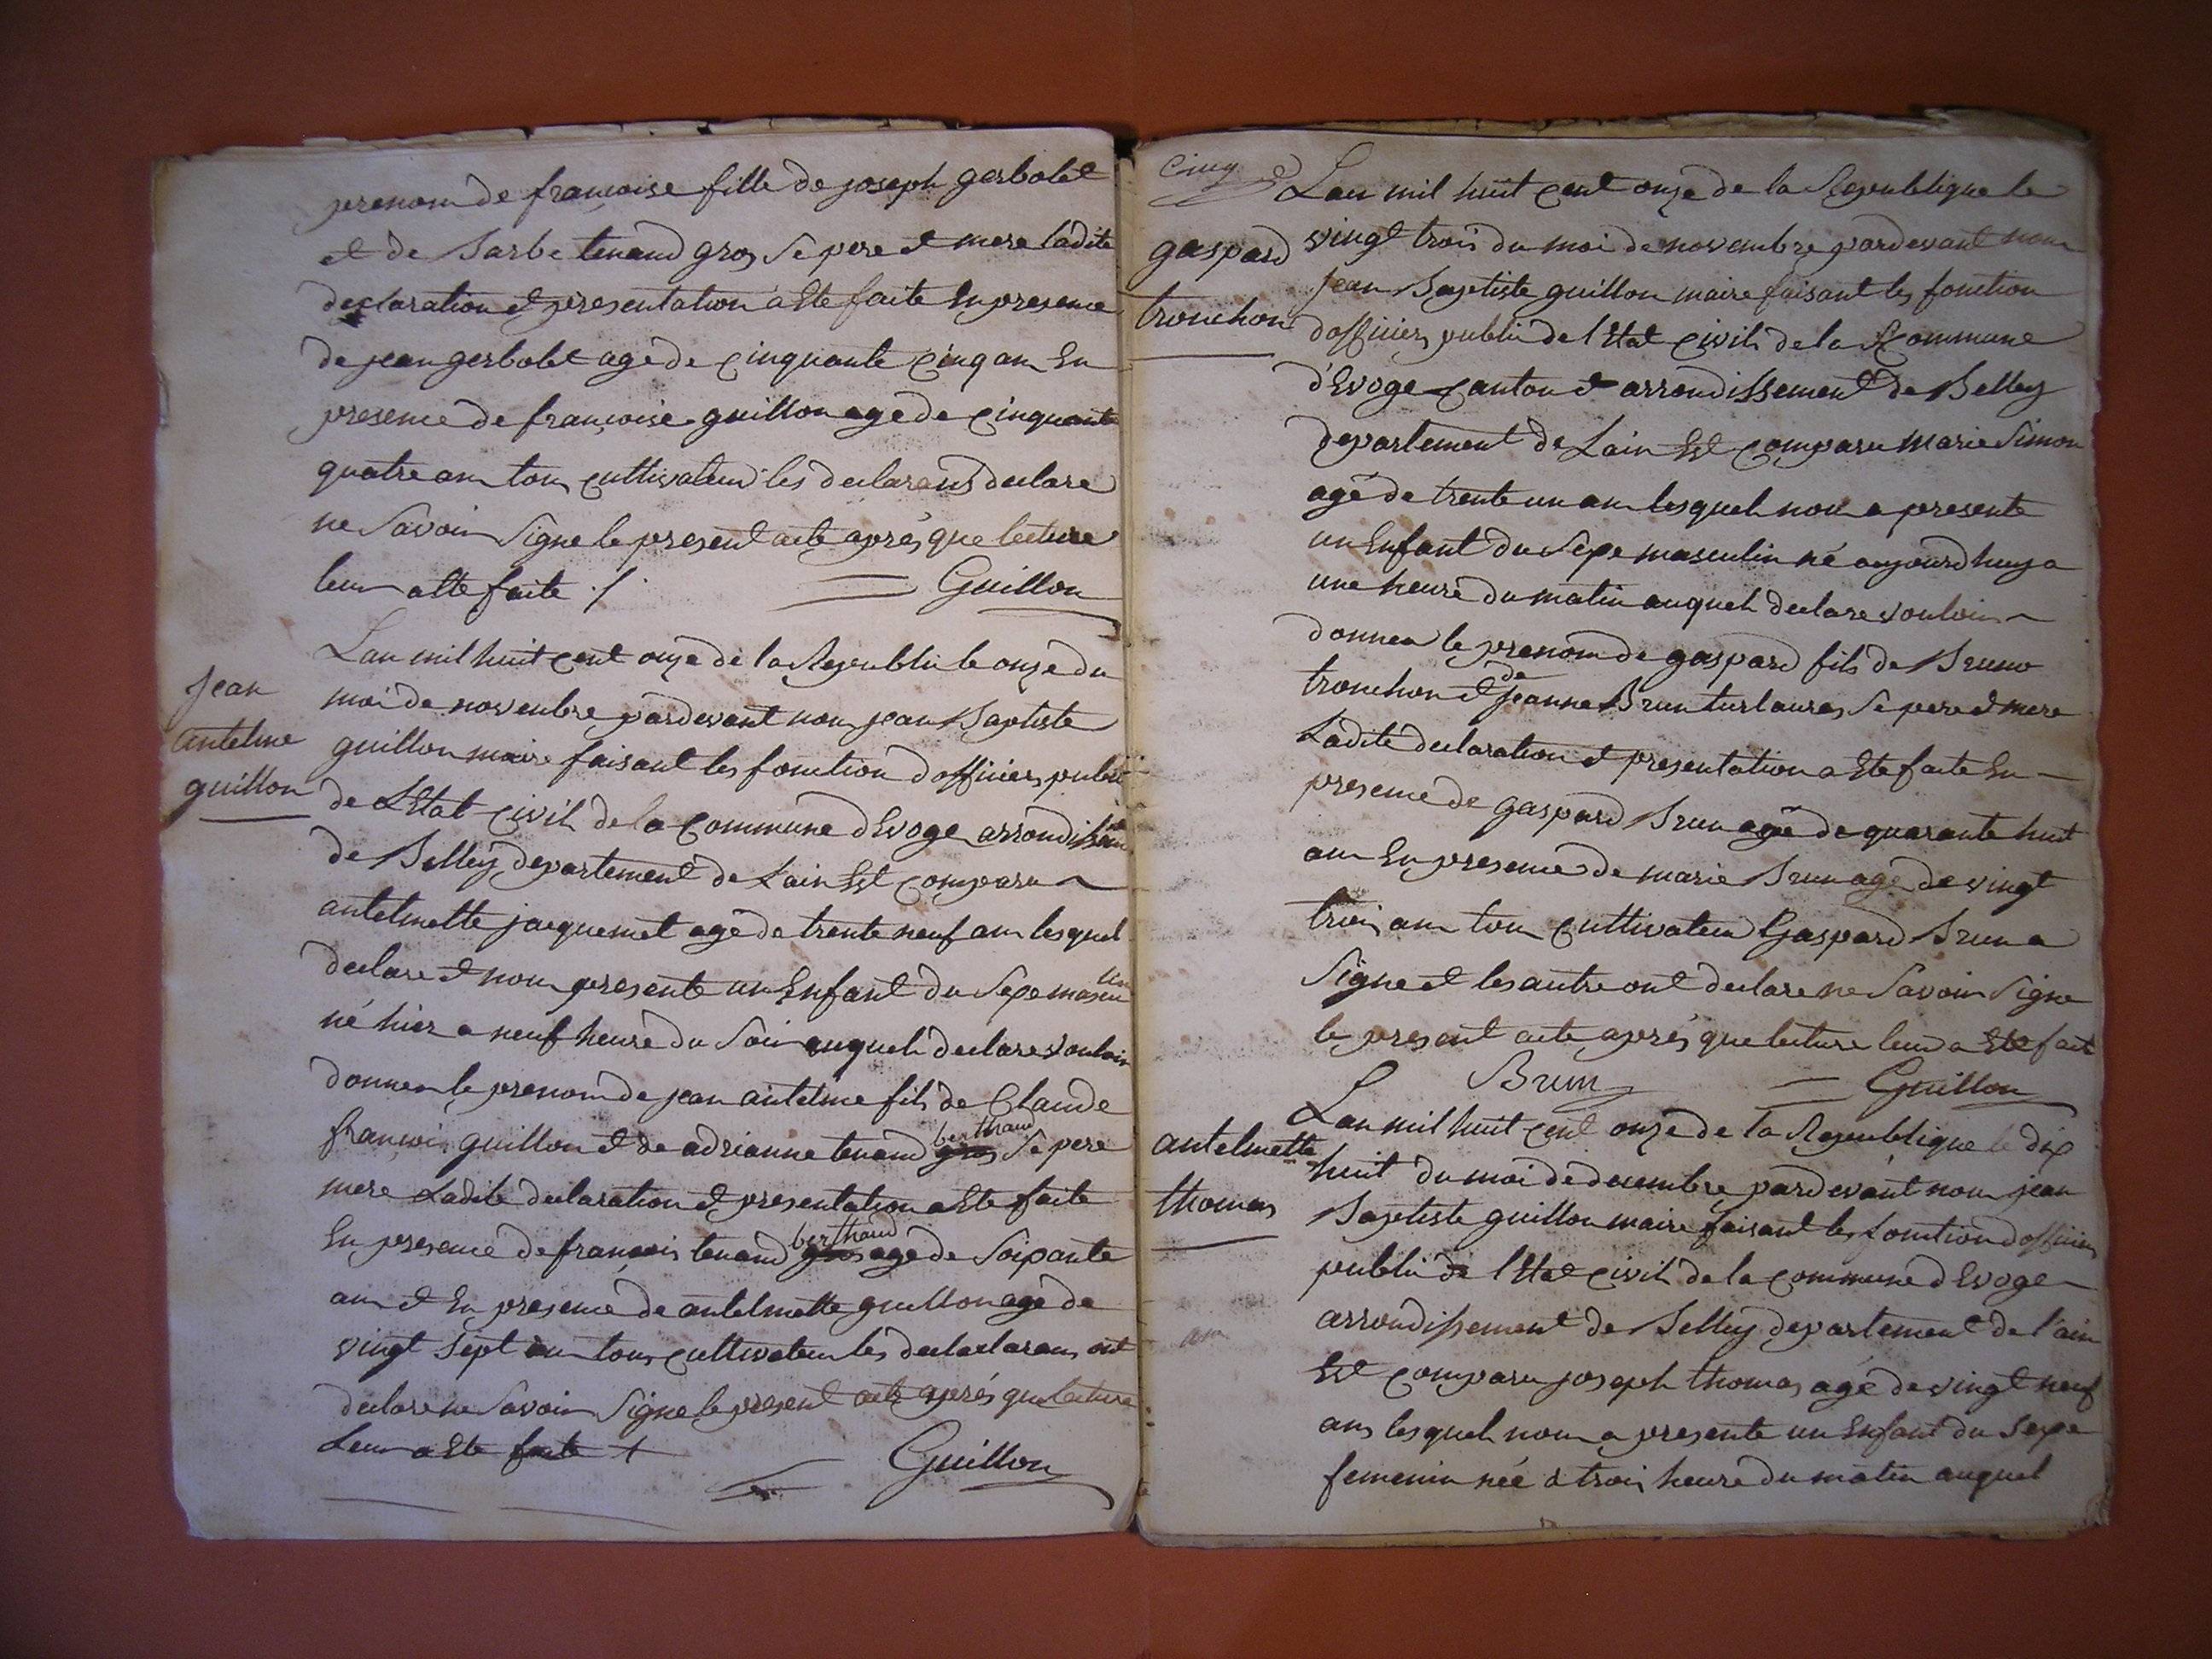 prenom de francoise fille de joseph gerbolet
et de Barbe tenand gros Se pere et mere ladite
declaration et presentation a Ete faite En presence
de jean gerbolet agé de Cinquante Cinq an En
presence de francoise guillon age de Cinquante
quatre an tous Cultivateur les declarans declare
ne Savoir Signe le present acte aprés que lecture
leur a ete faite ./. Guillon
Jean
antelme
guillon
Lan mil huit Cent onze de la Republi le onze du
moi de novembre pardevant nous jean Baptiste
guillon maire faisant les fonction dofficier public
de LEtat Civil de la Commune dEvoge arrondissem
de Belley departement de Lain Est Comparu
antelmette jacquemet agé de trente neuf ans lesquel
declare et nous presente un Enfant du Sexe mascu
lin
né hier a neuf heure du Soir auqueh declare vouloir
donner le prenom de jean antelme fils de Claude
francoi guillon et de adrianne tenand gros berthand Se pere
mere Ladite declaration et presentation a Ete faite
En presence de francois tenand gros berthand age de Soixante
an et En presence de antelmette guillon age de
vingt Sept an tous Cultivateur les decladarans ont
declare ne Savoir Signe le present acte aprés que lecture
Leur a Ete faite +
Guillon
Cinq
gaspard
tronchon
Lan mil huit Cent onze de la Republique le
vingt trois du moi de novembre pardevant nous
jean Baptiste guillon maire faisant les fonction
dofficier public de lEtat Civil de la Commune
d'Evoge Canton et arrondissement de Belley
departement de Lain Est Comparu Marie Simon
agé de trente un an lesqueh nous a presente
un Enfant du Sexe masculin né aujourdhuy a
une heure du matin auqueh declare vouloir
donner le prenom de gaspard fils de Bruno
tronchon et de jeanne Brun turlaures Se pere et mere
Ladite declaration et presentation a Ete faite En
presence de gaspard Brun agé de quarante huit
an En presence de marie Brun age de vingt
trois an tous Cultivateur Gaspard Brun a
Signe et les autre ont declare ne Savoir Signe
le present acte aprés que lecture leur a Ete fait
Brun Guillon
antelmette
thomas
Lan mil huit Cent onze de la Republique le dix
huit du moi de decembre pardevant nous jean
Baptiste guillon maire faisant les fonction dofficier
public de lEtat Civil de la Commune dEvoge
arrondissement de Belley departement de l'ain
Est Comparu joseph thomas agé de vingt neuf
ans lesqueh nous a presente un Enfant du Sexe
femenin née a trois heure du matin auquel